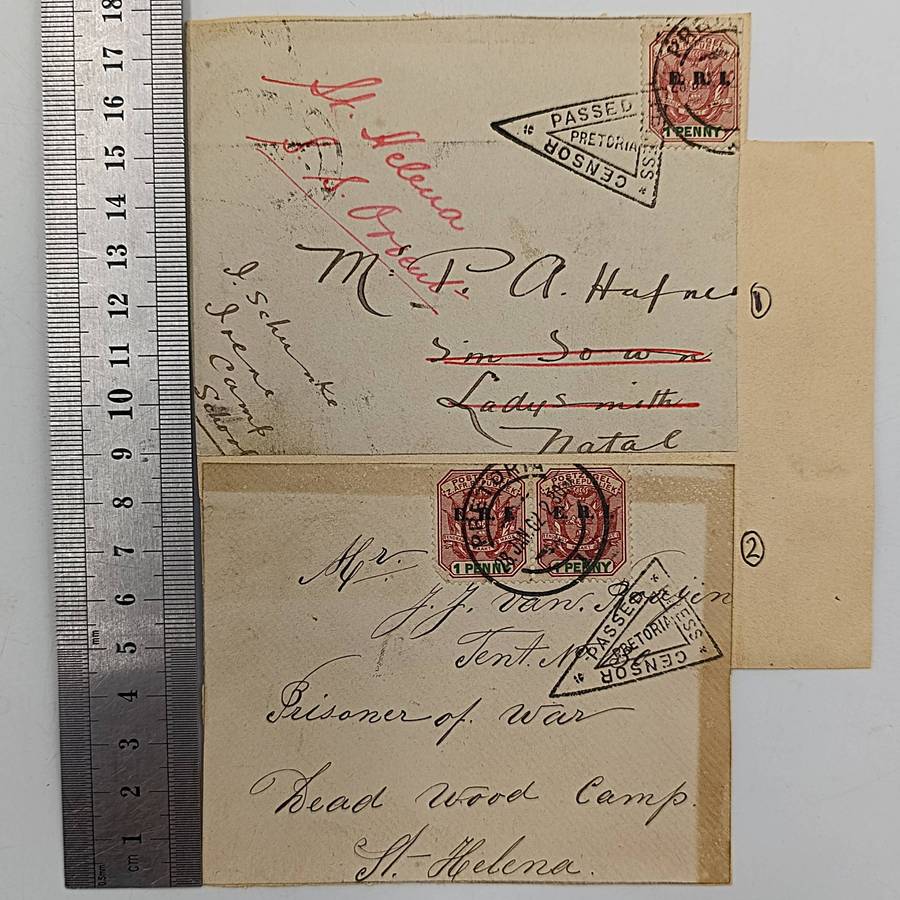 St. Helena
PASSED
PRETORIA
CENSOR
E. R. I.
1 PENNY
Mr. P. A. Hafne
Sim Sown
Ladysmith
Natal
J. Schunke
Irene
Camp
School
1
POSTZEGEL
E. R. I.
1 PENNY
POSTZEGEL
E. R. I.
1 PENNY
PRETORIA
JAN 02
Mr.
J. J. Van.
Tent. No
Prisoner of War
Dead Wood Camp.
St. Helena.
PASSED
PRETORIA
CENSOR
2
18
17
16
15
14
13
12
11
10
9
8
7
6
5
4
3
2
1
cm
mm
0.5mm